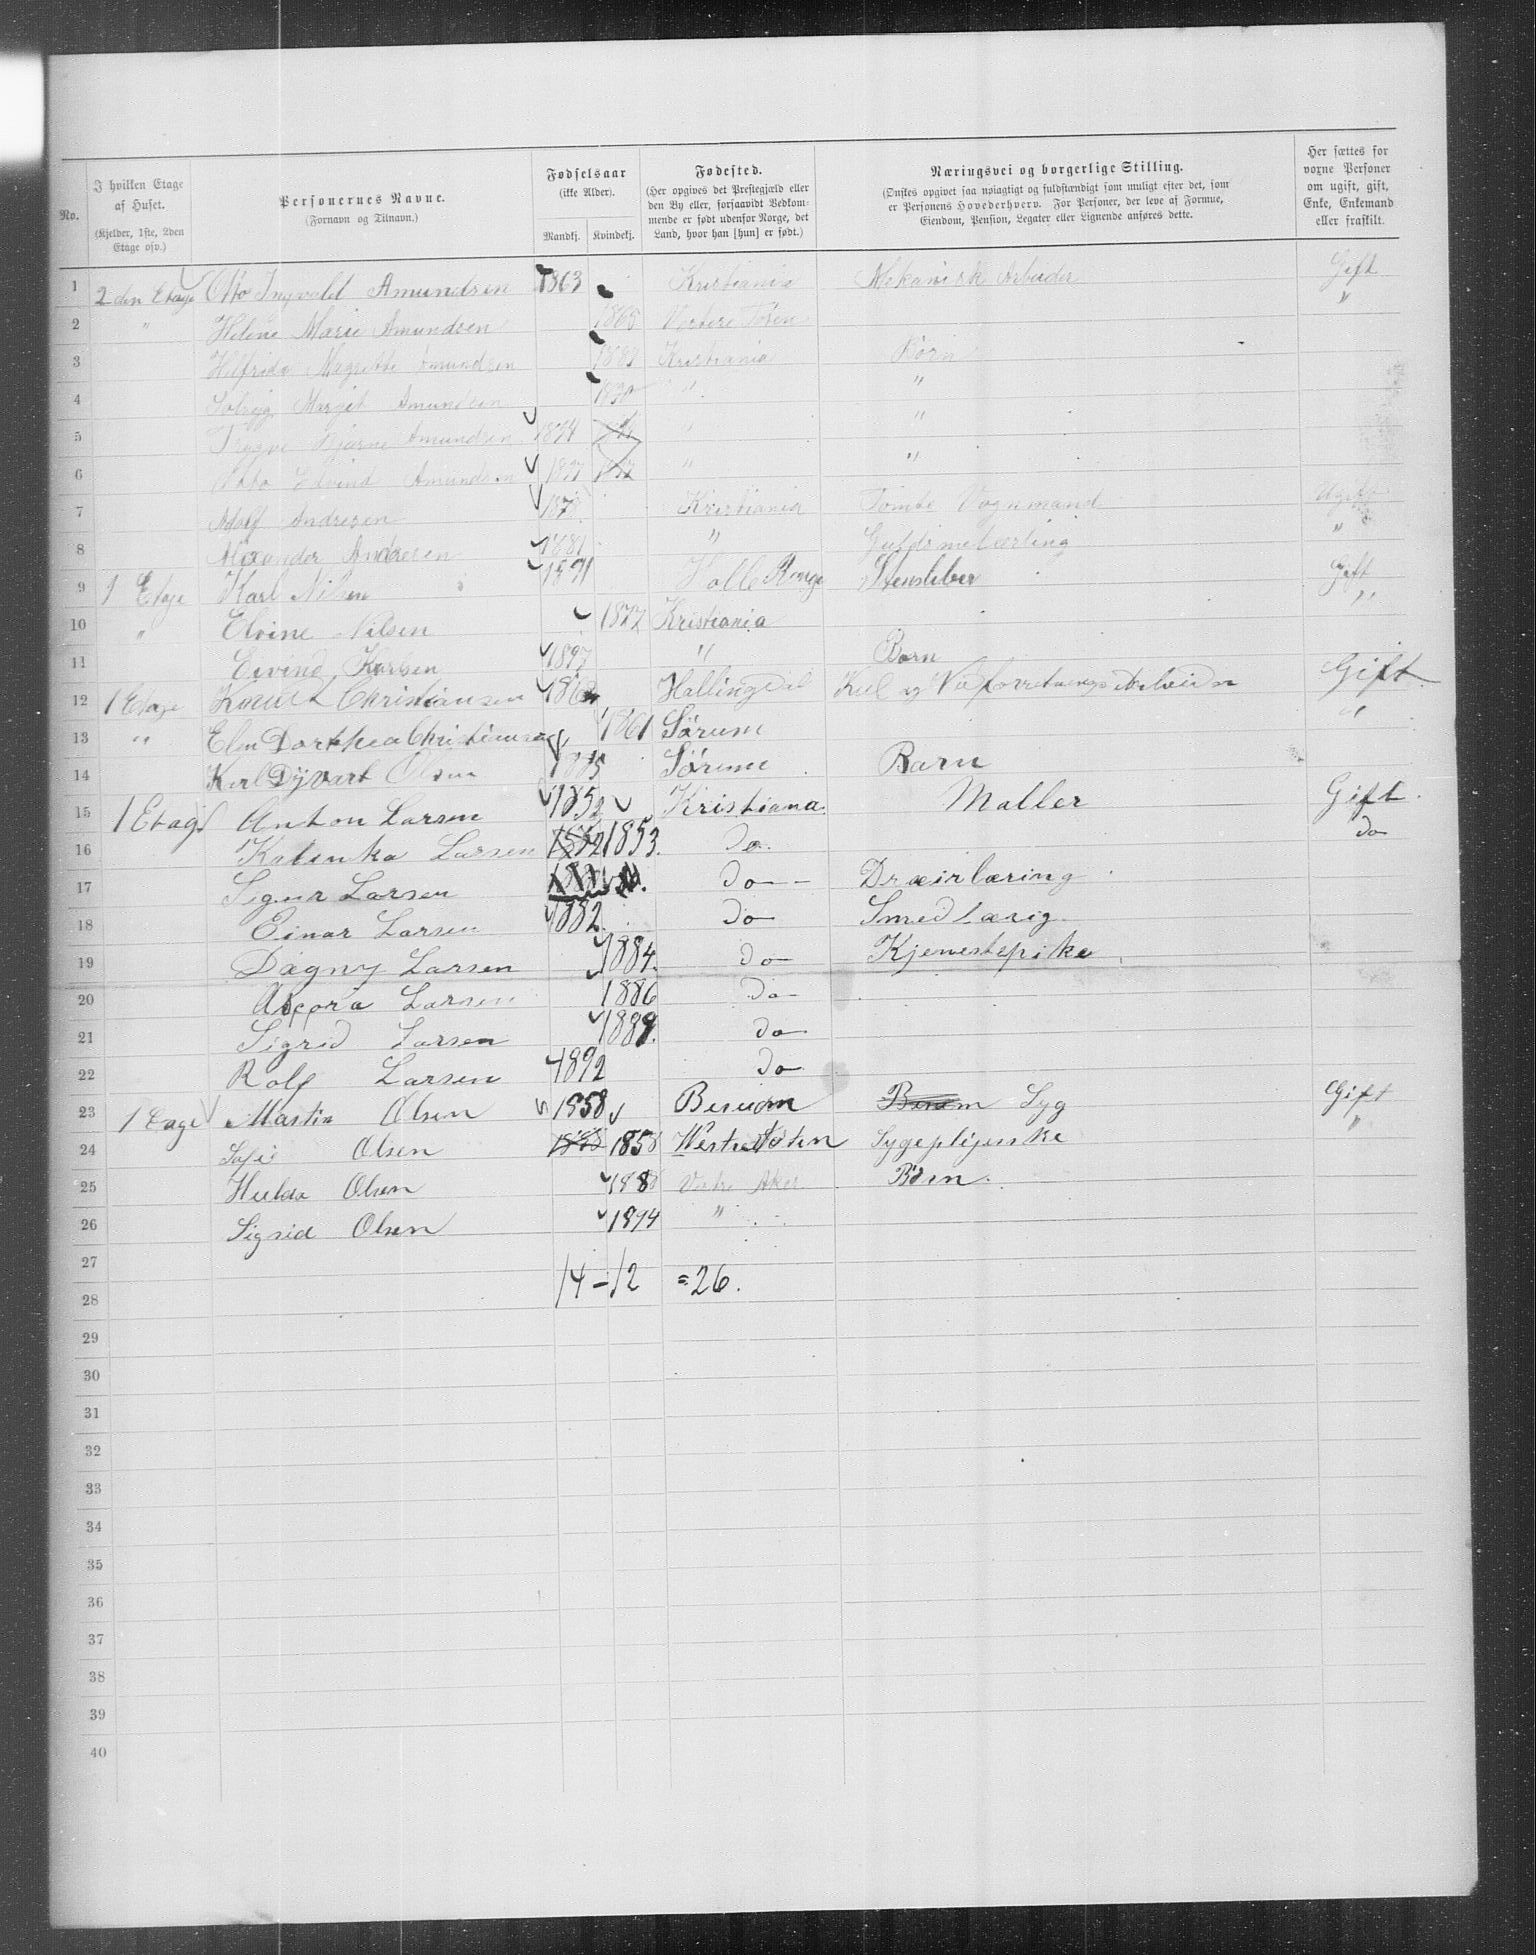 No.
I hvilken Etage af Huset. (Kjelder, 1ste, 2den Etage osv.)
Personernes Navne. (Fornavn og Tilnavn.)
Fødselsaar (ikke Alder). Mandkj. Kvindekj.
Fødested. (Her opgives det Prestegjæld eller den By eller, forsaavidt Vedkommende er født udenfor Norge, det Land, hvor han [hun] er født.)
Næringsvei og borgerlige Stilling. (Ønskes opgivet saa nøiagtigt og fuldstændigt som muligt efter det, som er Personens Hovederhverv. For Personer, der leve af Formue, Eiendom, Pension, Legater eller Lignende anføres dette.
Her sættes for voxne Personer om ugift, gift, Enke, Enkemand eller fraskilt.
1 2den Etage Otto Ingvald Amundsen 1863 Kristiania Mekanisk Arbeider Gift
2 " Helene Marie Amundsen 1865 Vestere Toten "
3 Helfrida Magrethe Amundsen Kristiania Børn
4 Solveig Margit Amundsen " "
5 Trygve Bjarne Amundsen 1894 " "
6 Otto Eivind Amundsen 1897 " "
7 Adolf Andresen Kristiania Vognmand Ugift
8 Alexander Andresen 1881 " Guldsmelærling "
9 1 Etage Karl Nilsen 1871 Stensliber Gift
10 " Elvine Nilsen 1877 Kristiania "
11 Eivind Karlsen 1897 " Barn
12 1 Etage Knut Christiansen Hallingdal Kul og Vedforretnings Arbeider Gift
13 " Dorthea Christiansen 1861 Sørum "
14 Karl Dyvart Olsen 1885 Sørum Barn
15 1 Etage Anton Larsen 1852 Kristiana Maller Gift
16 Kalinka Larsen 1852 1853 Do do
17 Sigur Larsen do Dreierlæring
18 Einar Larsen 1882 do Smedlærig
19 Dagny Larsen 1884 do Kjenestepike
20 Larsen 1886 do
21 Sigrid Larsen 1889 do
22 Rolf Larsen 1892 do
23 1 Etage Martin Olsen 1858 Berum Syg Gift
24 Sofie Olsen 1858 Westre Toten Sygepligerske "
25 Hulda Olsen 1888 Vestre Aker Børn
26 Sigrid Olsen 1894 "
27
14 – 12 = 26.
28
29
30
31
32
33
34
35
36
37
38
39
40